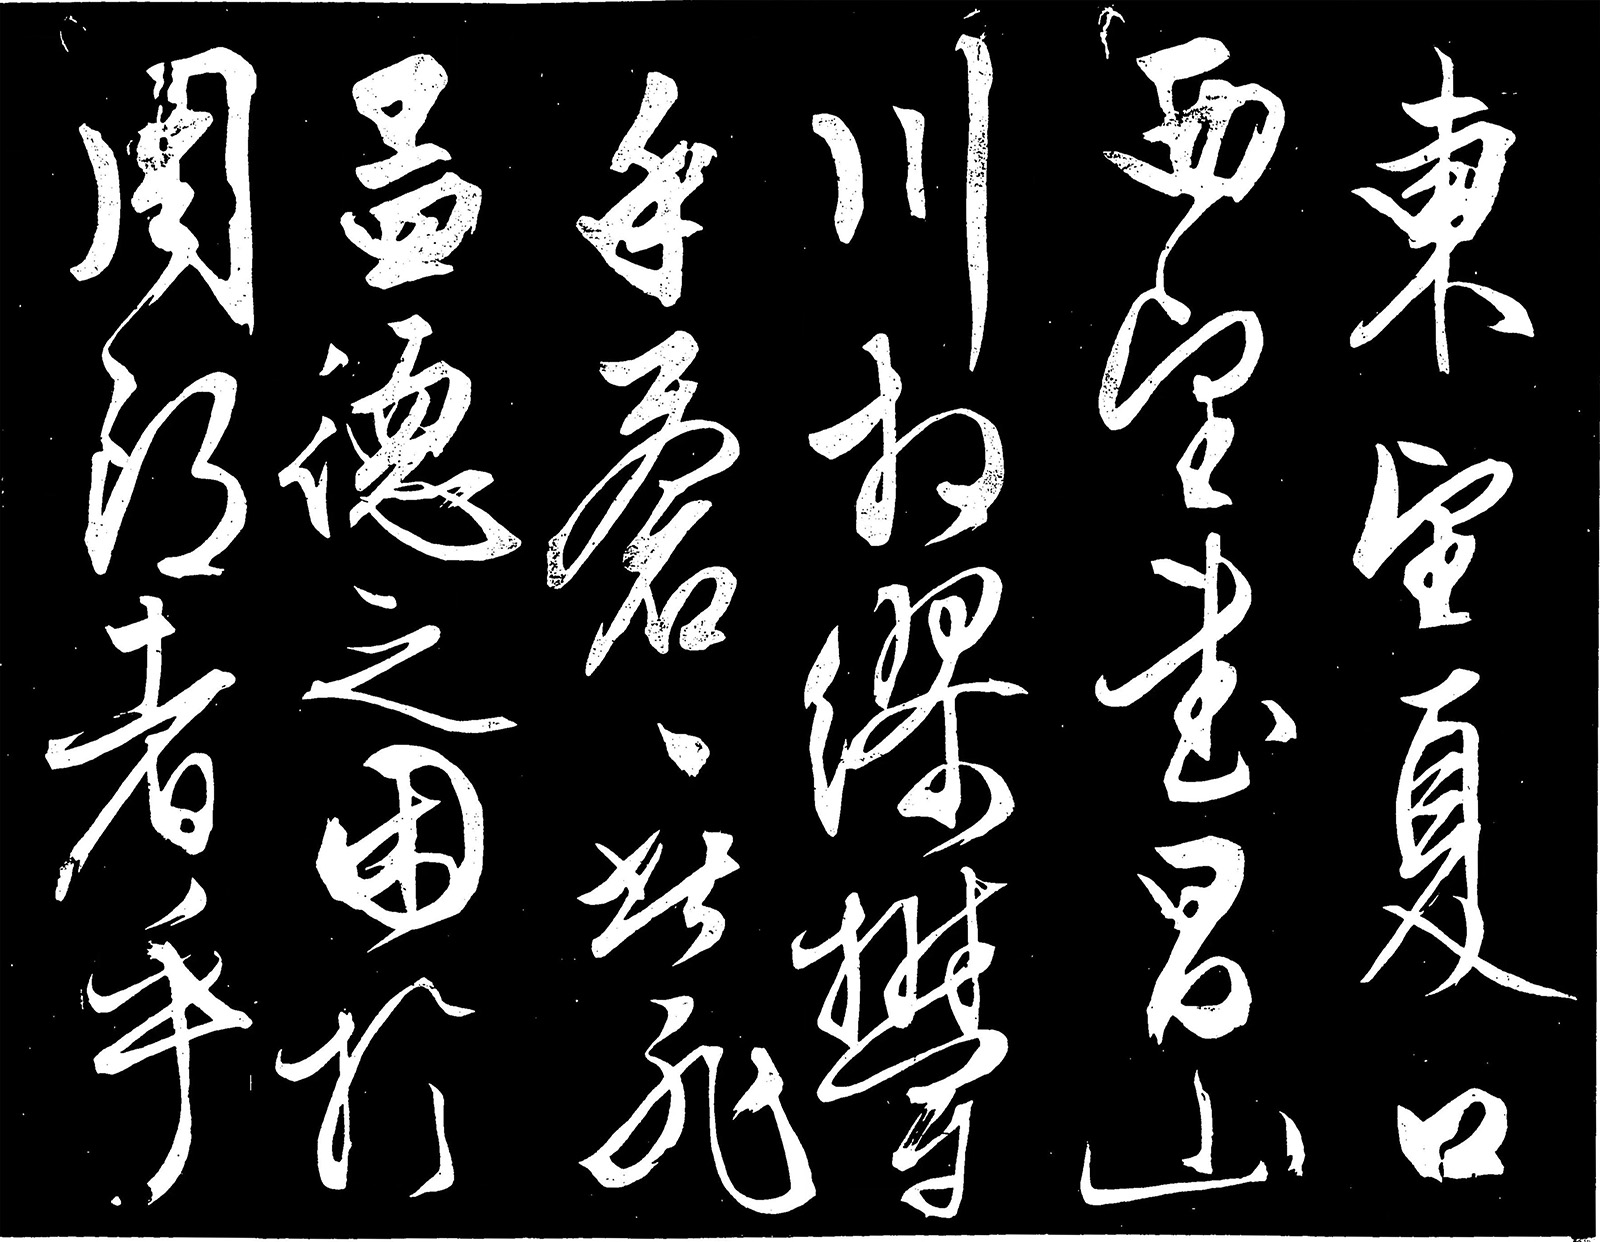 東望夏口
西望武昌山
川相繆鬱
乎蒼〻此非
孟德之困於
周郎者乎